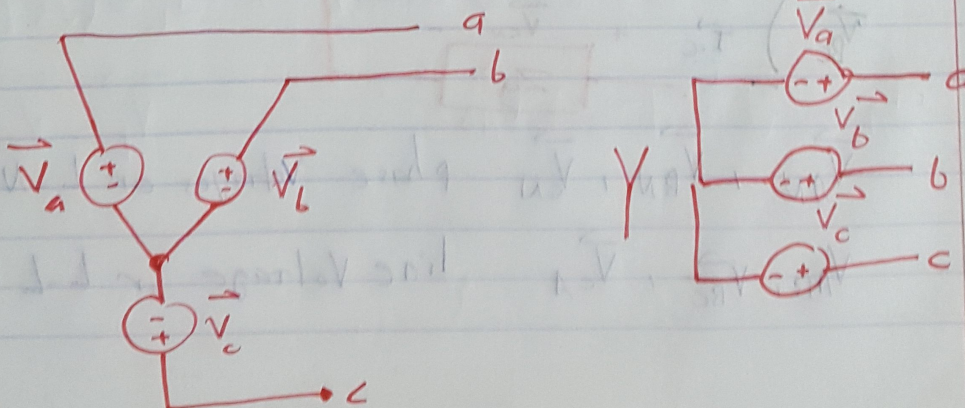 a
b
V⃗a
+
-
+
-
V⃗b
-
+
V⃗c
c
Y
V⃗a
- +
V⃗b
- +
b
V⃗c
- +
c